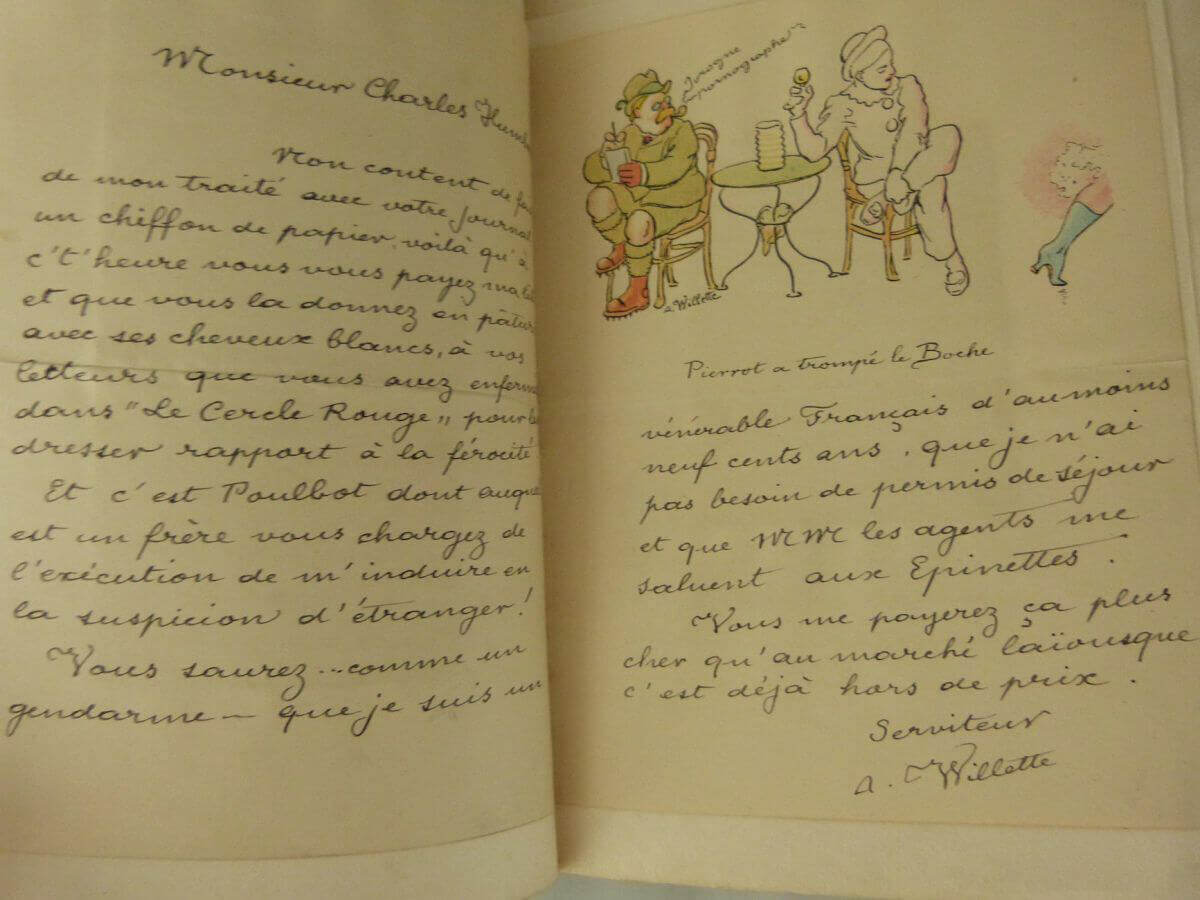 Monsieur Charles Hum
Non content de fai
de mon traité avec votre journal
un chiffon de papier, voilà qu'à
c't'heure vous vous payez ma
et que vous la donnez en pâtur
avec ses cheveux blancs, à vos
lecteurs que vous avez enferm
dans "Le Cercle Rouge" pour les
dresser rapport à la férocité
Et c'est Poulbot dont auque
est un frère vous chargez de
l'exécution de m'induire en
la suspicion d'étranger!
Vous saurez...comme un
gendarme — que je suis un
Ivrogne
pornographe
a. Willette
Pierrot a trompé le Boche
vénérable Français d'au moins
neuf cents ans, que je n'ai
pas besoin de permis de séjour
et que MM les agents me
saluent aux Epinettes.
Vous me payerez ça plus
cher qu'au marché laïousque
c'est déjà hors de prix.
Serviteur
a. Willette